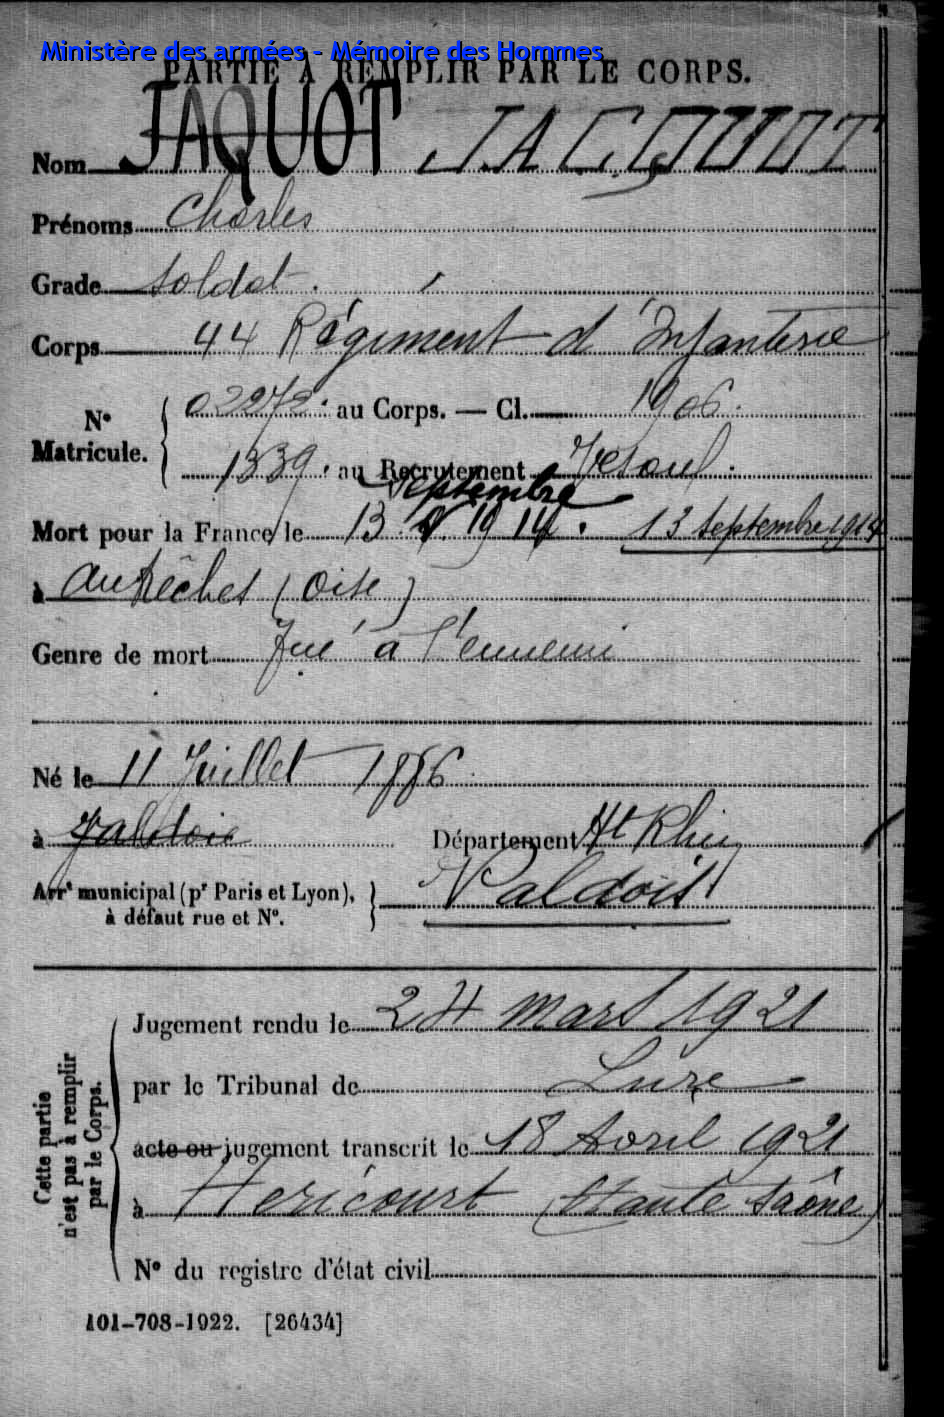 Ministère des armées - Mémoire des Hommes
PARTIE À REMPLIR PAR LE CORPS.
Nom JAQUOT JACQUOT
Prénoms Charles
Grade Soldat.
Corps 44 Régiment d'Infanterie
N° Matricule. 02272. au Corps. — Cl. 1906.
1339. au Recrutement Vesoul.
Septembre
Mort pour la France le 13. 9. 1914. 13 septembre 1914
à Autrêches (Oise)
Genre de mort Tué à l'ennemi
Né le 11 Juillet 1886
à Valdoie Département Ht Rhin
Arrt municipal (pr Paris et Lyon), à défaut rue et N°. Valdois
Cette partie n'est pas à remplir par le Corps.
Jugement rendu le 24 mars 1921
par le Tribunal de Lure
acte ou jugement transcrit le 18 Avril 1921
à Héricourt (Haute Saône)
N° du registre d'état civil
101-708-1922. [26434]